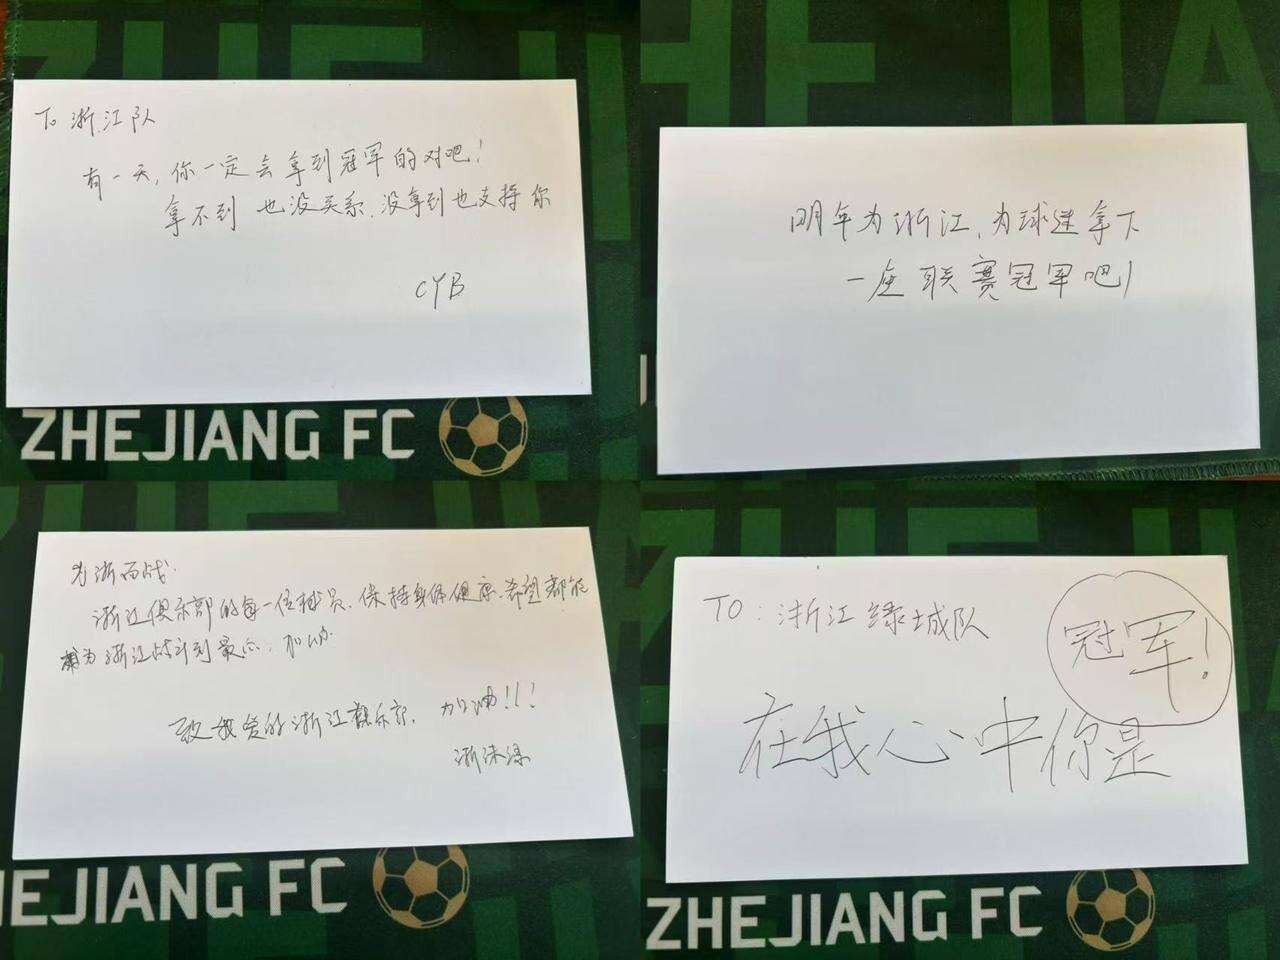 To 浙江队
有一天，你一定会拿到冠军的对吧！
拿不到 也没关系，没拿到也支持你
CYB
ZHEJIANG FC
明年为浙江，为球迷拿下
一座联赛冠军吧！
为浙而战.
浙江俱乐部的每一位球员，保持身体健康，希望都能
为浙江战斗到最后，加油
致我爱的浙江俱乐部，加油！！！
浙沐绿
HEJIANG FC
TO：浙江绿城队
冠军！
在我心中你是
ZHEJIANG FC